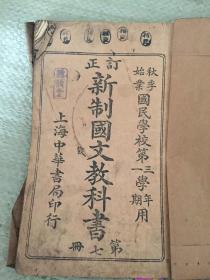 訂正
秋季始業
國民學校第三學年第一學期用
新制國文教科書
第七冊
上海中華書局印行